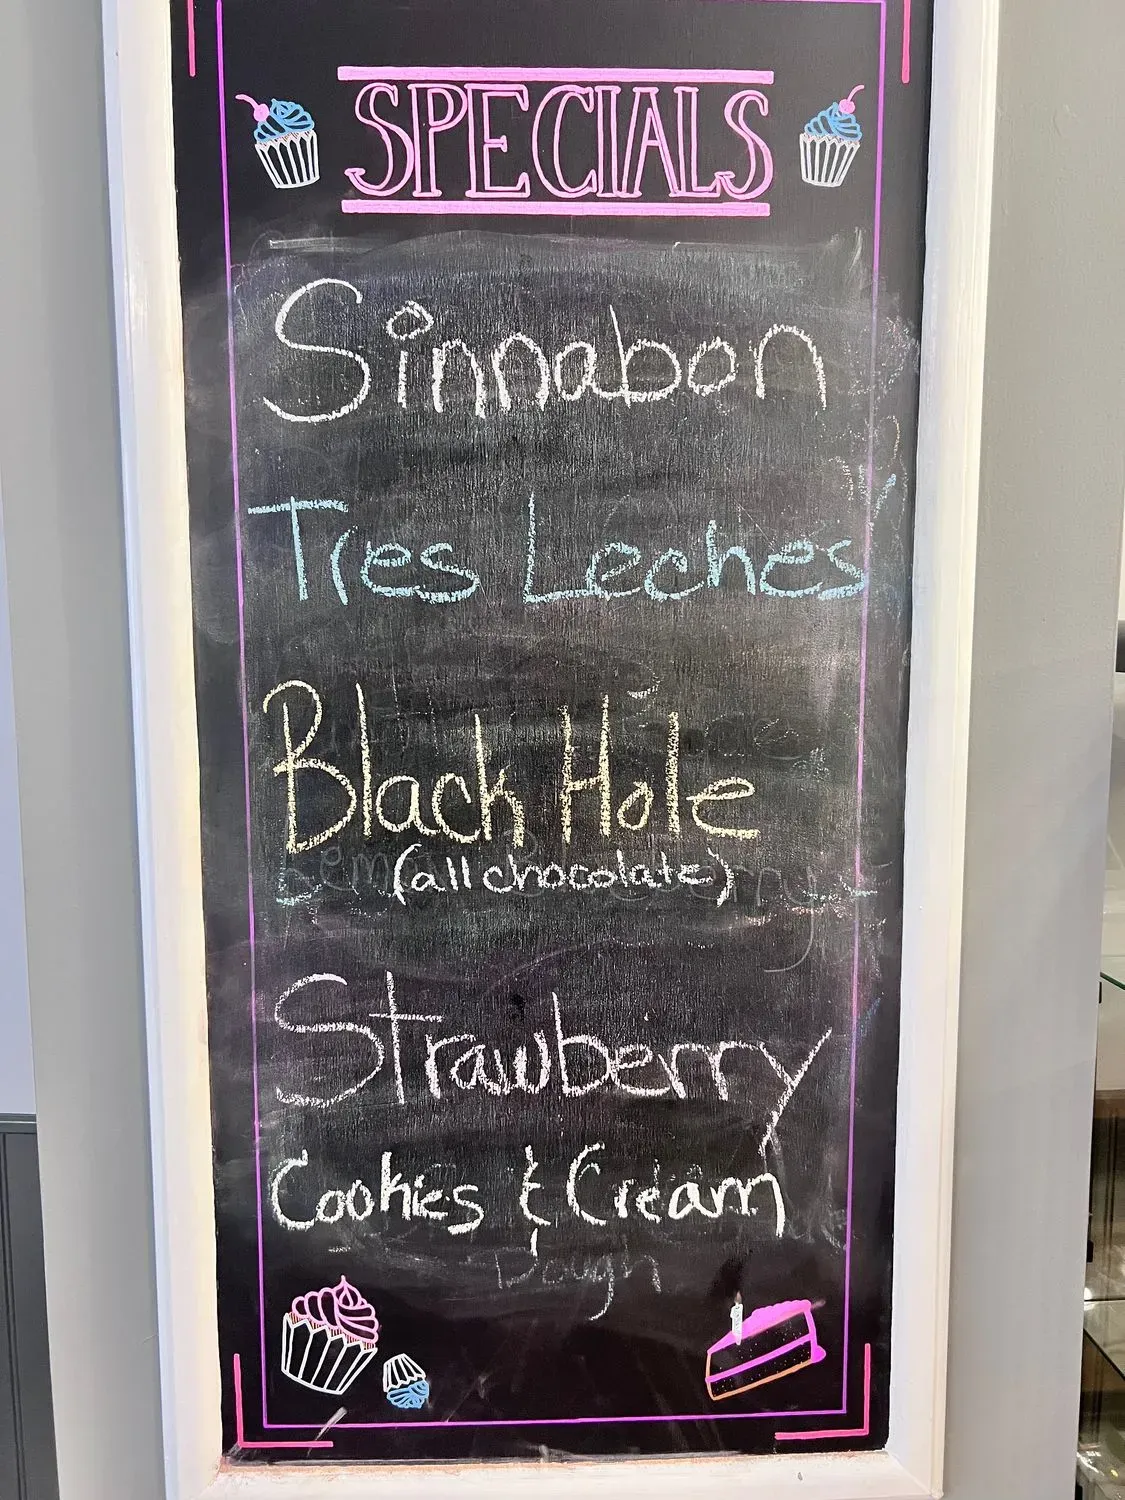 SPECIALS
Sinnabon
Tres Leches
Black Hole
(all chocolate)
Strawberry
Cookies & Cream
Dough